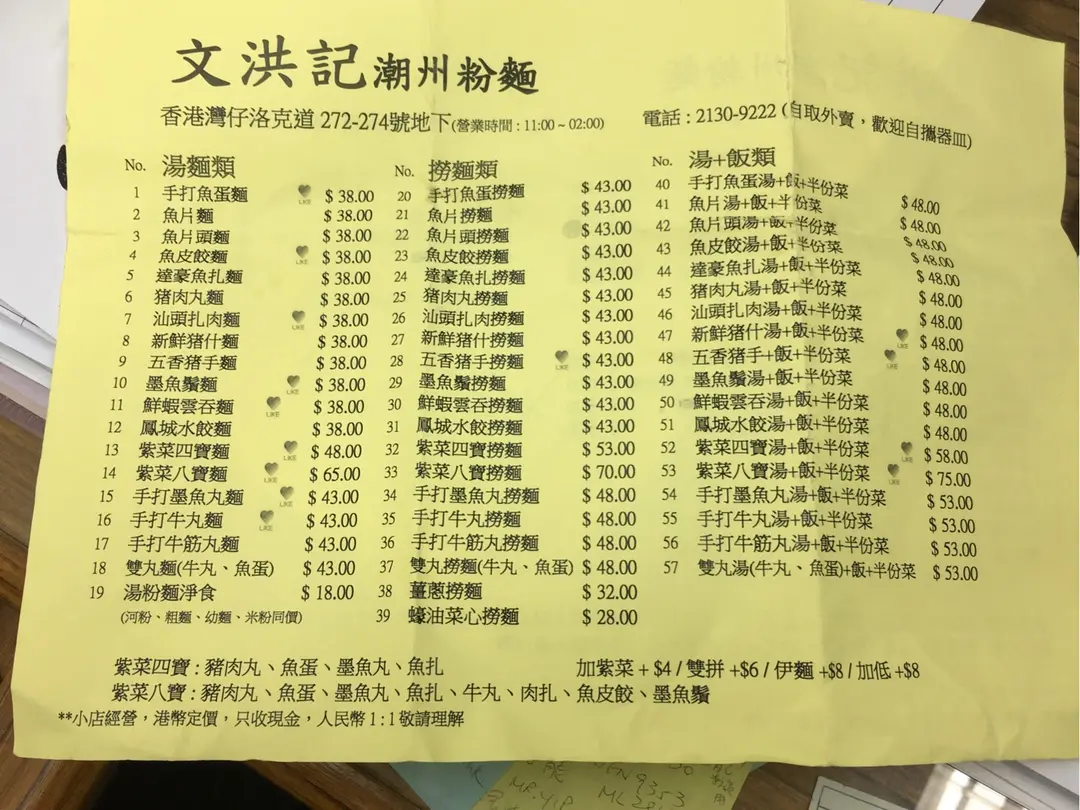 文洪記潮州粉麵
香港灣仔洛克道 272-274號地下(營業時間 : 11:00 ~ 02:00) 電話 : 2130-9222 (自取外賣，歡迎自攜器皿)
No. 湯麵類
1 手打魚蛋麵 LIKE $ 38.00
2 魚片麵 $ 38.00
3 魚片頭麵 $ 38.00
4 魚皮餃麵 LIKE $ 38.00
5 達豪魚扎麵 $ 38.00
6 猪肉丸麵 $ 38.00
7 汕頭扎肉麵 LIKE $ 38.00
8 新鮮猪什麵 $ 38.00
9 五香猪手麵 $ 38.00
10 墨魚鬚麵 LIKE $ 38.00
11 鮮蝦雲吞麵 LIKE $ 38.00
12 鳳城水餃麵 $ 38.00
13 紫菜四寶麵 LIKE $ 48.00
14 紫菜八寶麵 LIKE $ 65.00
15 手打墨魚丸麵 LIKE $ 43.00
16 手打牛丸麵 LIKE $ 43.00
17 手打牛筋丸麵 $ 43.00
18 雙丸麵(牛丸、魚蛋) $ 43.00
19 湯粉麵淨食 $ 18.00
(河粉、粗麵、幼麵、米粉同價)
No. 撈麵類
20 手打魚蛋撈麵 $ 43.00
21 魚片撈麵 $ 43.00
22 魚片頭撈麵 $ 43.00
23 魚皮餃撈麵 $ 43.00
24 達豪魚扎撈麵 $ 43.00
25 猪肉丸撈麵 $ 43.00
26 汕頭扎肉撈麵 $ 43.00
27 新鮮猪什撈麵 $ 43.00
28 五香猪手撈麵 LIKE $ 43.00
29 墨魚鬚撈麵 $ 43.00
30 鮮蝦雲吞撈麵 $ 43.00
31 鳳城水餃撈麵 $ 43.00
32 紫菜四寶撈麵 $ 53.00
33 紫菜八寶撈麵 $ 70.00
34 手打墨魚丸撈麵 $ 48.00
35 手打牛丸撈麵 $ 48.00
36 手打牛筋丸撈麵 $ 48.00
37 雙丸撈麵(牛丸、魚蛋) $ 48.00
38 薑蔥撈麵 $ 32.00
39 蠔油菜心撈麵 $ 28.00
No. 湯+飯類
40 手打魚蛋湯+飯+半份菜 $ 48.00
41 魚片湯+飯+半份菜 $ 48.00
42 魚片頭湯+飯+半份菜 $ 48.00
43 魚皮餃湯+飯+半份菜 $ 48.00
44 達豪魚扎湯+飯+半份菜 $ 48.00
45 猪肉丸湯+飯+半份菜 $ 48.00
46 汕頭扎肉湯+飯+半份菜 $ 48.00
47 新鮮猪什湯+飯+半份菜 LIKE $ 48.00
48 五香猪手+飯+半份菜 LIKE $ 48.00
49 墨魚鬚湯+飯+半份菜 $ 48.00
50 鮮蝦雲吞湯+飯+半份菜 $ 48.00
51 鳳城水餃湯+飯+半份菜 $ 48.00
52 紫菜四寶湯+飯+半份菜 LIKE $ 58.00
53 紫菜八寶湯+飯+半份菜 LIKE $ 75.00
54 手打墨魚丸湯+飯+半份菜 $ 53.00
55 手打牛丸湯+飯+半份菜 $ 53.00
56 手打牛筋丸湯+飯+半份菜 $ 53.00
57 雙丸湯(牛丸、魚蛋)+飯+半份菜 $ 53.00
紫菜四寶 : 豬肉丸、魚蛋、墨魚丸、魚扎
加紫菜 + $4 / 雙拼 +$6 / 伊麵 +$8 / 加低 +$8
紫菜八寶 : 豬肉丸、魚蛋、墨魚丸、魚扎、牛丸、肉扎、魚皮餃、墨魚鬚
**小店經營，港幣定價，只收現金，人民幣 1 : 1 敬請理解
MR.YIP
9353